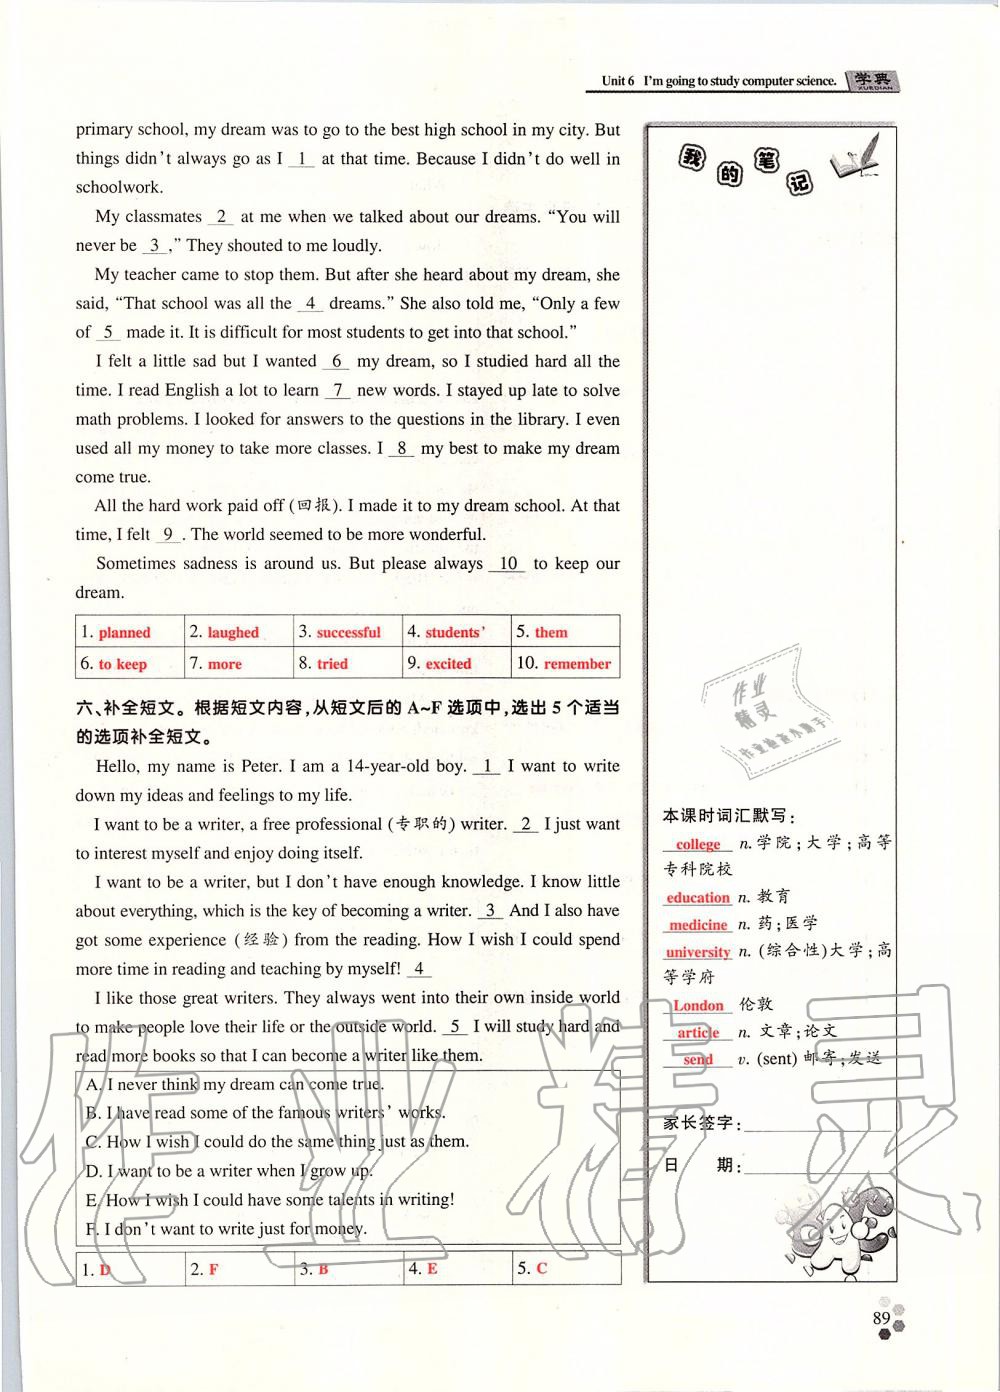 Unit 6 I'm going to study computer science. 学典
XUEDIAN
primary school, my dream was to go to the best high school in my city. But
things didn't always go as I 1 at that time. Because I didn't do well in
schoolwork.
My classmates 2 at me when we talked about our dreams. “You will
never be 3 ,” They shouted to me loudly.
My teacher came to stop them. But after she heard about my dream, she
said, “That school was all the 4 dreams.” She also told me, “Only a few
of 5 made it. It is difficult for most students to get into that school.”
I felt a little sad but I wanted 6 my dream, so I studied hard all the
time. I read English a lot to learn 7 new words. I stayed up late to solve
math problems. I looked for answers to the questions in the library. I even
used all my money to take more classes. I 8 my best to make my dream
come true.
All the hard work paid off (回报). I made it to my dream school. At that
time, I felt 9 . The world seemed to be more wonderful.
Sometimes sadness is around us. But please always 10 to keep our
dream.
1. planned 2. laughed 3. successful 4. students' 5. them
6. to keep 7. more 8. tried 9. excited 10. remember
六、补全短文。根据短文内容,从短文后的 A~F 选项中,选出 5 个适当
的选项补全短文。
Hello, my name is Peter. I am a 14-year-old boy. 1 I want to write
down my ideas and feelings to my life.
I want to be a writer, a free professional (专职的) writer. 2 I just want
to interest myself and enjoy doing itself.
I want to be a writer, but I don't have enough knowledge. I know little
about everything, which is the key of becoming a writer. 3 And I also have
got some experience (经验) from the reading. How I wish I could spend
more time in reading and teaching by myself! 4
I like those great writers. They always went into their own inside world
to make people love their life or the outside world. 5 I will study hard and
read more books so that I can become a writer like them.
A. I never think my dream can come true.
B. I have read some of the famous writers' works.
C. How I wish I could do the same thing just as them.
D. I want to be a writer when I grow up.
E. How I wish I could have some talents in writing!
F. I don't want to write just for money.
1. D 2. F 3. B 4. E 5. C
我的笔记
作业
精灵
作业检查小助手
本课时词汇默写:
college n. 学院;大学;高等
专科院校
education n. 教育
medicine n. 药;医学
university n. (综合性)大学;高
等学府
London 伦敦
article n. 文章;论文
send v. (sent) 邮寄;发送
家长签字:
日 期:
89
作业精灵